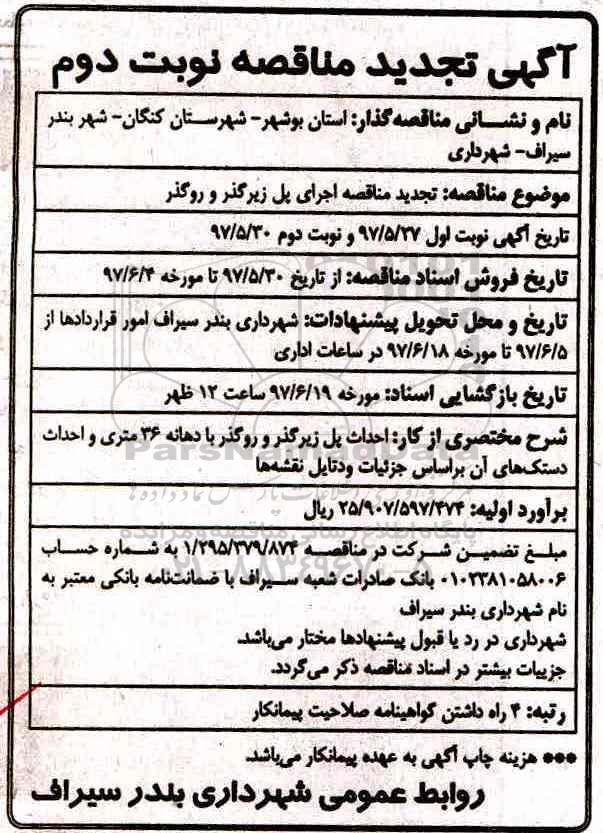 آگهی تجدید مناقصه نوبت دوم
نام و نشانی مناقصه‌گذار: استان بوشهر- شهرستان کنگان- شهر بندر
سیراف- شهرداری
موضوع مناقصه: تجدید مناقصه اجرای پل زیرگذر و روگذر
تاریخ آگهی نوبت اول ۹۷/۵/۲۷ و نوبت دوم ۹۷/۵/۳۰
تاریخ فروش اسناد مناقصه: از تاریخ ۹۷/۵/۳۰ تا مورخه ۹۷/۶/۴
تاریخ و محل تحویل پیشنهادات: شهرداری بندر سیراف امور قراردادها از
۹۷/۶/۵ تا مورخه ۹۷/۶/۱۸ در ساعات اداری
تاریخ بازگشایی اسناد: مورخه ۹۷/۶/۱۹ ساعت ۱۲ ظهر
شرح مختصری از کار: احداث پل زیرگذر و روگذر با دهانه ۳۶ متری و احداث
دستک‌های آن براساس جزئیات ودتایل نقشه‌ها
برآورد اولیه: ۲۵/۹۰۷/۵۹۷/۴۷۴ ریال
مبلغ تضمین شرکت در مناقصه ۱/۲۹۵/۳۷۹/۸۷۴ به شماره حساب
۰۱۰۲۳۸۱۰۵۸۰۰۶ بانک صادرات شعبه سیراف با ضمانت‌نامه بانکی معتبر به
نام شهرداری بندر سیراف
شهرداری در رد یا قبول پیشنهادها مختار می‌باشد.
جزییات بیشتر در اسناد مناقصه ذکر می‌گردد.
رتبه: ۴ راه داشتن گواهینامه صلاحیت پیمانکار
*** هزینه چاپ آگهی به عهده پیمانکار می‌باشد.
روابط عمومی شهرداری بندر سیراف
ParsNamadData